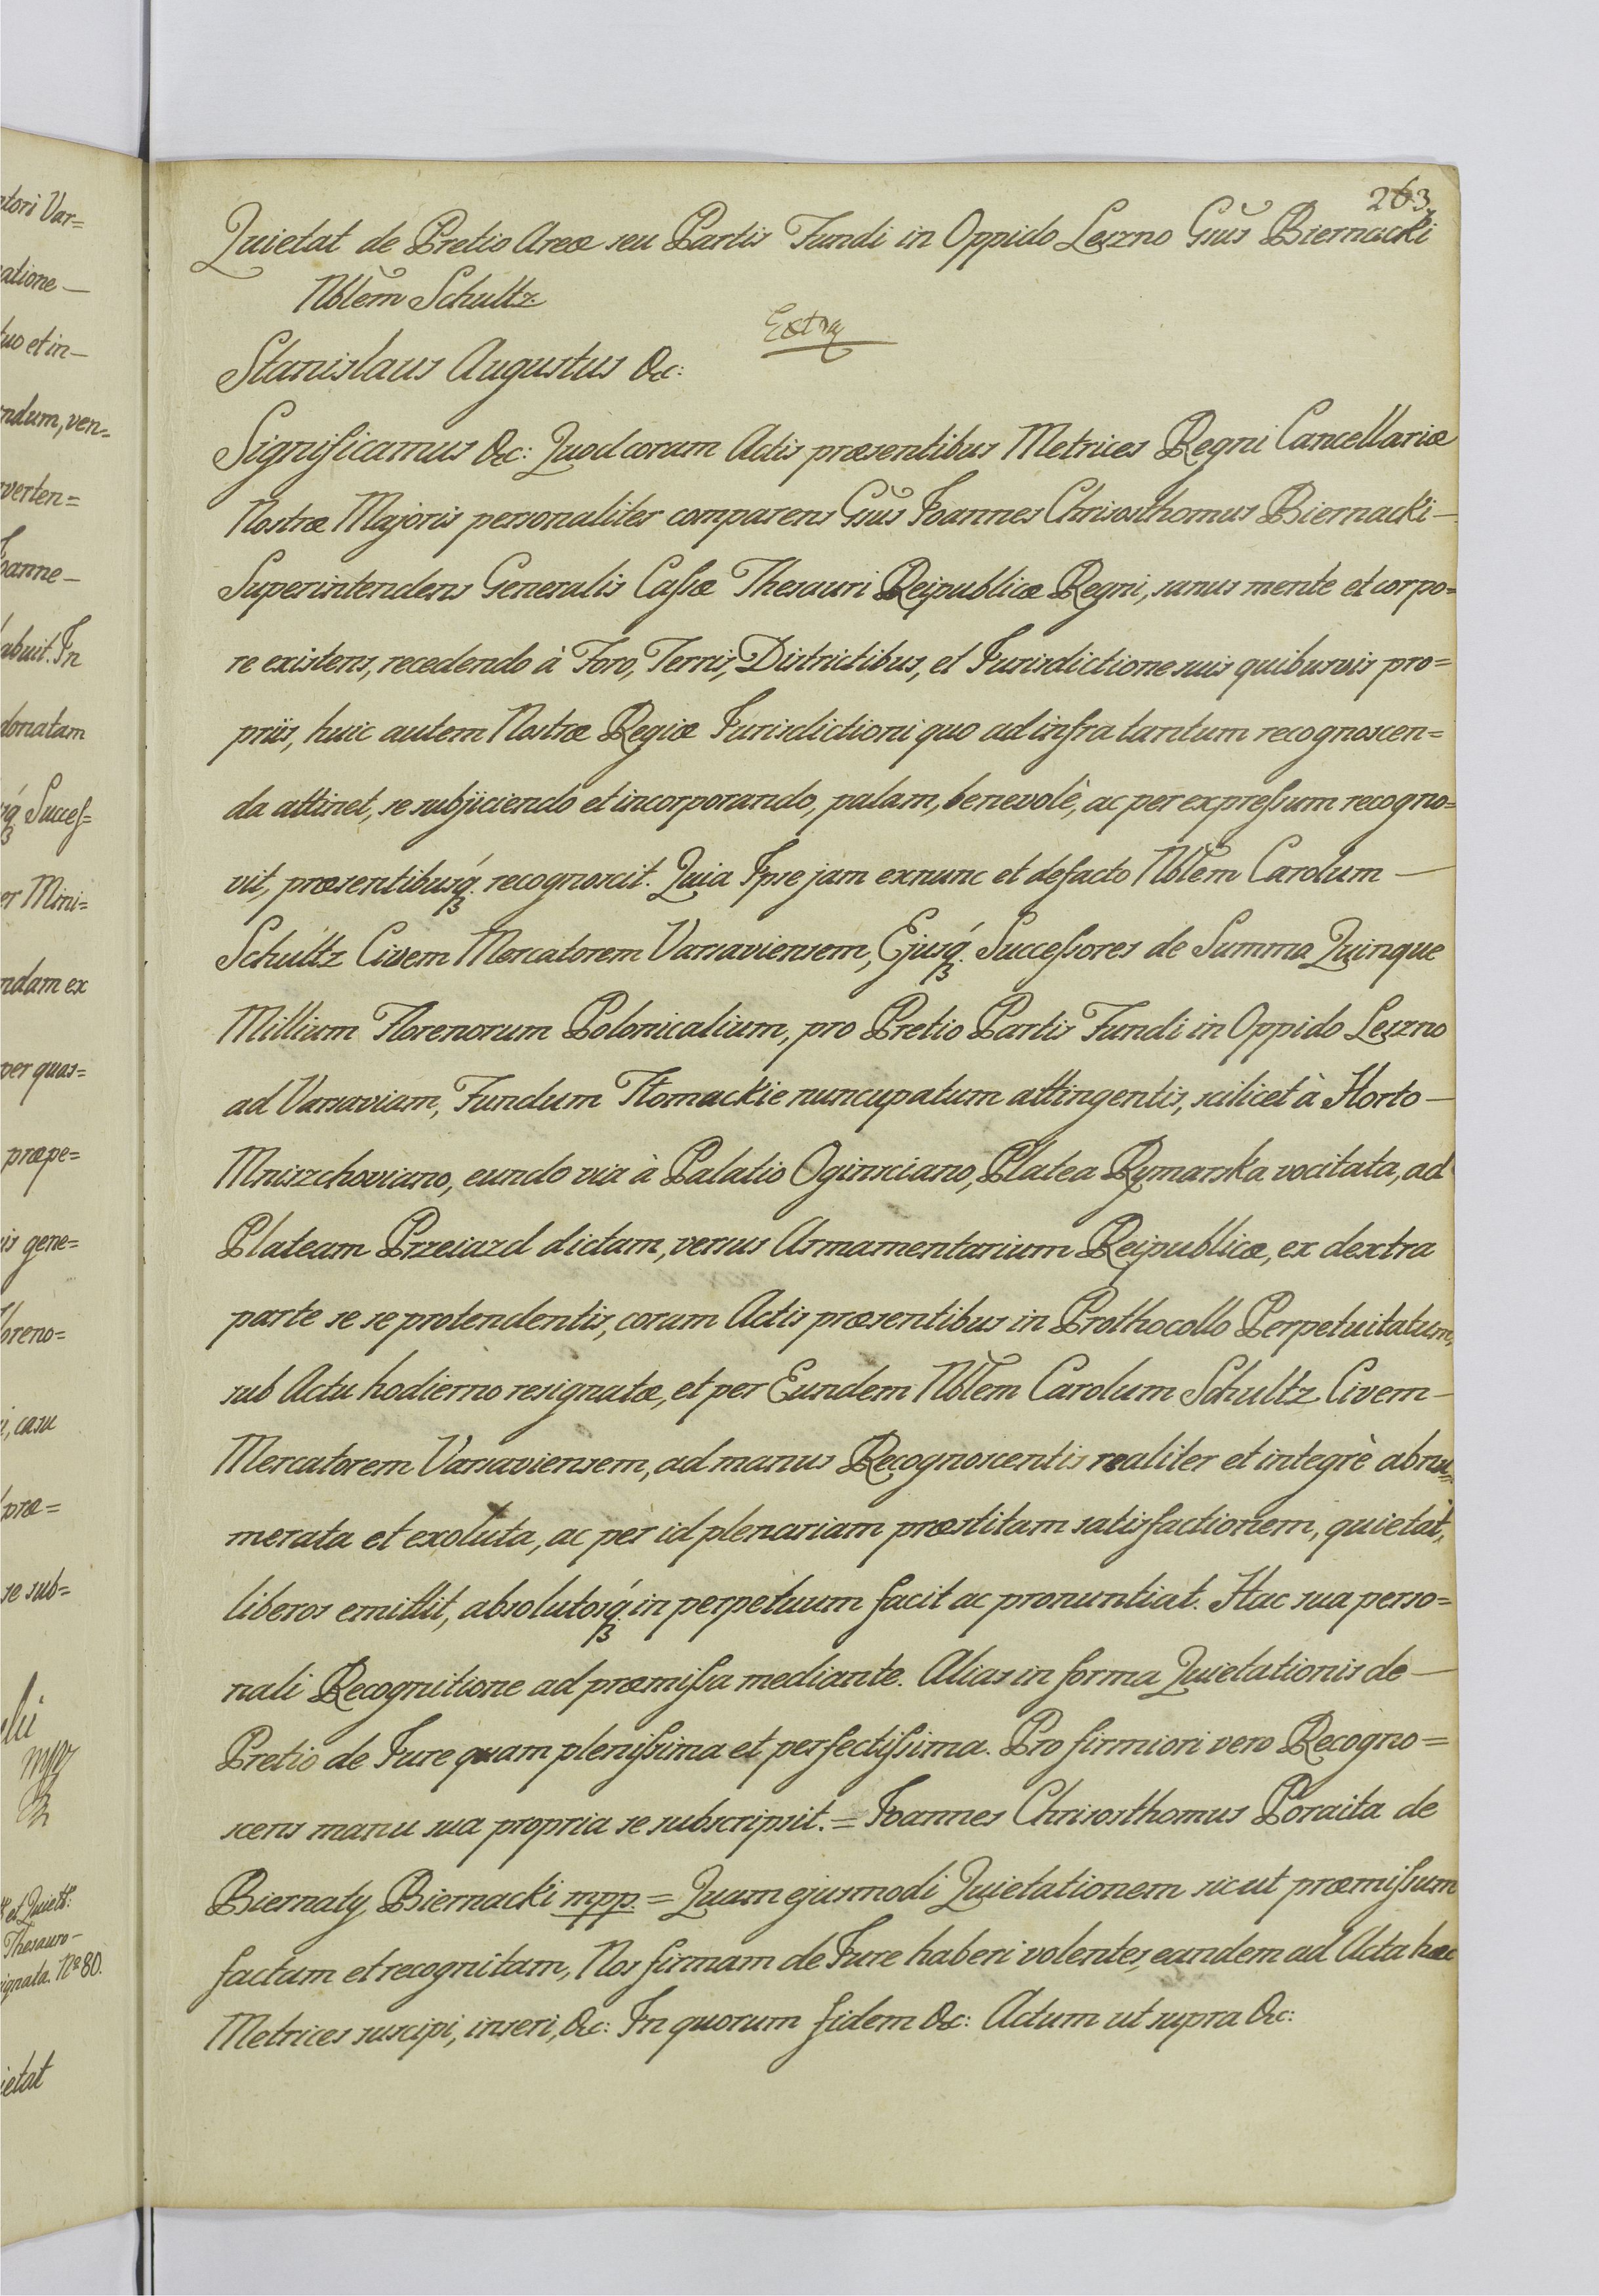 tori Var=
atione —
tuo et in —
ndum, ven=
verten=
oanne —
abuit. In
donatam
Succes=
er Mini=
ndam ex
per quas=
præpe=
is gene=
loreno=
i, casu
præ=
se sub=
mpp
et Quiett:
Thesauro —
signata. No 80.
ietat
263.
Quietat de Pretio Areæ seu Partis Fundi in Oppido Leszno Gsus Biernacki
Nblem Schultz
Extra
Stanislaus Augustus &c:
Significamus &c: Quod coram Actis præsentibus Metrices Regni Cancellariæ
Nostræ Majoris personaliter comparens Gsus Joannes Chrisosthomus Biernacki —
Superintendens Generalis Cassæ Thesauri Reipublicæ Regni, sanus mente et corpo=
re existens, recedendo à Foro, Terris, Districtibus, et Jurisdictione suis quibusvis pro=
priis, huic autem Nostræ Regiæ Jurisdictioni quo ad infra tantum recognoscen=
da attinet, se subjiciendo et incorporando, palam, benevolè, ac per expressum recogno=
vit, præsentibusq́ꝫ recognoscit. Quia Ipse jam exnunc et defacto Nblem Carolum —
Schultz Civem Mercatorem Varsaviensem, Ejusq́ꝫ Successores de Summa Quinque
Millium Florenorum Polonicalium, pro Pretio Partis Fundi in Oppido Leszno
ad Varsaviam, Fundum Tłomackie nuncupatum attingentis, scilicet à Horto —
Mniszchoviano, eundo via à Palatio Oginsciano, Platea Rymarska vocitata, ad
Plateam Przeiazd dictam, versus Armamentarium Reipublicæ, ex dextra
parte se se protendentis, coram Actis præsentibus in Prothocollo Perpetuitatum,
sub Actu hodierno resignatæ, et per Eundem Nblem Carolum Schultz Civem —
Mercatorem Varsaviensem, ad manus Recognoscentis realiter et integrè abnu=
merata et exoluta, ac per id plenariam præstitam satisfactionem, quietat,
liberos emittit, absolutosq́ꝫ in perpetuum facit ac pronuntiat. Hac sua perso=
nali Recognitione ad præmissa mediante. Alias in forma Quietationis de —
Pretio de Jure quam plenissima et perfectissima. Pro firmiori vero Recogno=
scens manu sua propria se subscripsit. = Joannes Chrisosthomus Poraita de
Biernaty Biernacki mpp. = Quam ejusmodi Quietationem sicut præmissum
factam et recognitam, Nos firmam de Jure haberi volentes, eandem ad Acta hæc
Metrices suscipi, inseri, &c: In quorum fidem &c: Actum ut supra &c: